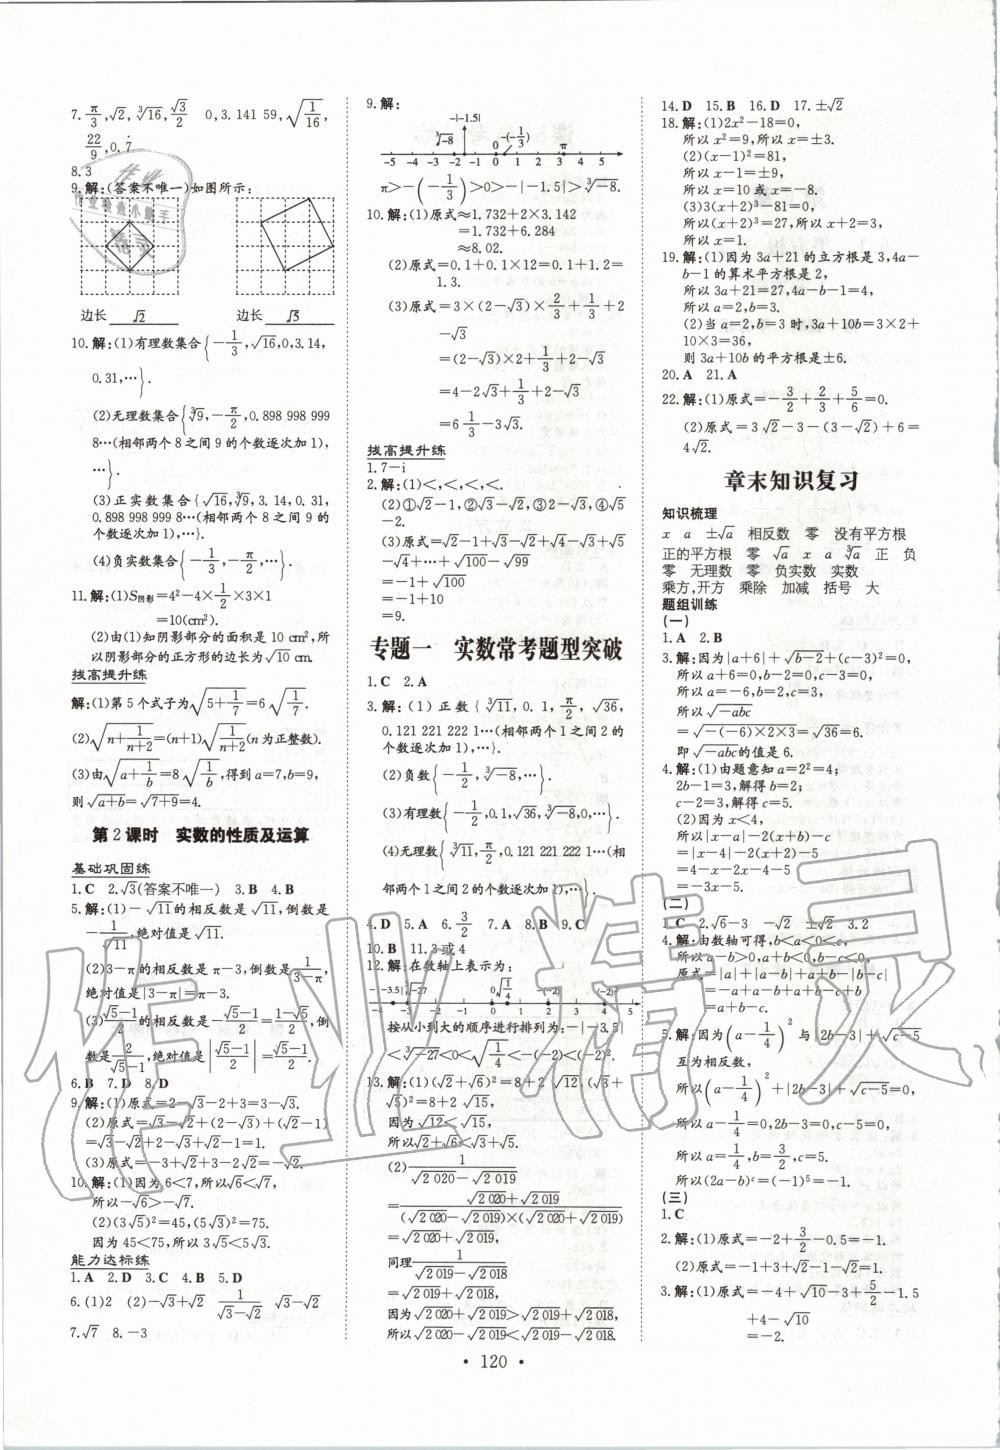 7. π/3, √2, ∛16, √3/2　0, 3.141 59, √(1/16),
22/9, 0.7̇
8. 3
9. 解:(答案不唯一)如图所示:
边长 √2　边长 √5
10. 解:(1)有理数集合{-1/3, √16, 0, 3.14,
0.31, …}.
(2)无理数集合{∛9, -π/2, 0.898 998 999
8…(相邻两个8之间9的个数逐次加1),
…}.
(3)正实数集合{√16, ∛9, 3.14, 0.31,
0.898 998 999 8…(相邻两个8之间9的
个数逐次加1), …}.
(4)负实数集合{-1/3, -π/2, …}.
11. 解:(1)S阴影=4²-4×1/2×3×1
=10(cm²).
(2)由(1)知阴影部分的面积是10 cm²,所
以阴影部分的正方形的边长为√10 cm.
拔高提升练
解:(1)第5个式子为√(5+1/7)=6√(1/7).
(2)√(n+1/(n+2))=(n+1)√(1/(n+2))(n为正整数).
(3)由√(a+1/b)=8√(1/b),得到a=7,b=9,
则√(a+b)=√(7+9)=4.
第2课时　实数的性质及运算
基础巩固练
1. C　2. √3(答案不唯一)　3. B　4. B
5. 解:(1)-√11的相反数是√11,倒数是
-1/√11,绝对值是√11.
(2)3-π的相反数是π-3,倒数是1/(3-π),
绝对值是|3-π|=π-3.
(3)(√5-1)/2的相反数是-(√5-1)/2=(1-√5)/2,倒
数是2/(√5-1),绝对值是|(√5-1)/2|=(√5-1)/2.
6. B　7. D　8. D
9. 解:(1)原式=2-√3-2+3=3-√3.
(2)原式=√3-√2+(2-√3)+(√2-1)
=√3-√2+2-√3+√2-1=1.
(3)原式=-3+√2+3-√2=0.
10. 解:(1)因为6<7,所以√6<√7,
所以-√6>-√7.
(2)(3√5)²=45,(5√3)²=75.
因为45<75,所以3√5<5√3.
能力达标练
1. A　2. D　3. C　4. B　5. D
6. (1)2　(2)-√3+√2　1/(√3-√2)　√3-√2
7. √7　8. -3
9. 解:
-|-1.5|
∛-8　-(-1/3)
-5　-4　-3　-2　-1　0　1　2　3　π　4　5
π>-(-1/3)>0>-|-1.5|>∛-8.
10. 解:(1)原式≈1.732+2×3.142
=1.732+6.284
≈8.02.
(2)原式=0.1+0.1×12=0.1+1.2=
1.3.
(3)原式=3×(2-√3)×2/3+1/3+2
-√3
=(2-√3)×2+1/3+2-√3
=4-2√3+1/3+2-√3
=6 1/3-3√3.
拔高提升练
1. 7-i
2. 解:(1)<,<,<,<.
(2)①√2-1,②√3-√2,③2-√3,④√5
-2.
(3)原式=√2-1+√3-√2+√4-√3+√5
-√4+…+√100-√99
=-1+√100
=-1+10
=9.
专题一　实数常考题型突破
1. C　2. A
3. 解:(1)正数{∛11, 0.1, π/2, √36,
0.121 221 222 1…(相邻两个1之间2的
个数逐次加1), …}.
(2)负数{-1/2, ∛-8, …}.
(3)有理数{-1/2, 0.1, √36, ∛-8, 0, …}.
(4)无理数{∛11, π/2, 0.121 221 222 1…(相
邻两个1之间2的个数逐次加1), …}.
4. D　5. A　6. 3/2　7. A　8. B　9. C
10. B　11. 3或4
12. 解:在数轴上表示为:
-|-3.5|　∛-27　0　√(1/4)　-(-2)　(-2)²
-4　-3　-2　-1　0　1　2　3　4　5
按从小到大的顺序进行排列为:-|-3.5|
<∛-27<0<√(1/4)<-(-2)<(-2)².
13. 解:(1)(√2+√6)²=8+2√12,(√3+
√5)²=8+2√15,
因为√12<√15,
所以√2+√6<√3+√5.
(2) 1/(√2 020-√2 019)
=(√2 020+√2 019)/((√2 020-√2 019)×(√2 020+√2 019))
=√2 020+√2 019,
同理 1/(√2 019-√2 018)
=√2 019+√2 018,
因为√2 020+√2 019>√2 019+√2 018,
所以√2 020-√2 019<√2 019-√2 018.
14. D　15. B　16. D　17. ±√2
18. 解:(1)2x²-18=0,
所以x²=9,所以x=±3.
(2)(x-1)²=81,
所以x-1=±9,
所以x=10或x=-8.
(3)3(x+2)³-81=0,
所以(x+2)³=27,所以x+2=3,
所以x=1.
19. 解:(1)因为3a+21的立方根是3,4a-
b-1的算术平方根是2,
所以3a+21=27,4a-b-1=4,
所以a=2,b=3.
(2)当a=2,b=3时,3a+10b=3×2+
10×3=36,
则3a+10b的平方根是±6.
20. A　21. A
22. 解:(1)原式=-3/2+2/3+5/6=0.
(2)原式=3√2-3-(3-√2)+6=
4√2.
章末知识复习
知识梳理
x　a　±√a　相反数　零　没有平方根
正的平方根　零　√a　x　a　∛a　正　负
零　无理数　零　负实数　实数
乘方,开方　乘除　加减　括号　大
题组训练
(一)
1. A　2. B
3. 解:因为|a+6|+√(b-2)+(c-3)²=0,
所以a+6=0,b-2=0,c-3=0,
所以a=-6,b=2,c=3,
所以√(-abc)
=√(-(-6)×2×3)=√36=6.
即√(-abc)的值是6.
4. 解:(1)由题意知a=2²=4;
2b-1=3,解得b=2;
c-2=3,解得c=5.
(2)因为x<4,
所以|x-a|-2(x+b)-c
=|x-4|-2(x+2)-5
=4-x-2x-4-5
=-3x-5.
(二)
1. C　2. √6-3　-√2　±√2　3. 2
4. 解:由数轴可得,b<a<0<c,
所以a-b>0,a+b<0,b-c<0,
原式=|a|+|a-b|+|a+b|-|b-c|
=-a+a-b+a+b+b+c
=a+b-c.
5. 解:因为(a-1/4)²与|2b-3|+√(c-5)
互为相反数,
所以(a-1/4)²+|2b-3|+√(c-5)=0,
所以a-1/4=0,2b-3=0,c-5=0,
所以a=1/4,b=3/2,c=5.
所以(2a-b)ᶜ=(-1)⁵=-1.
(三)
1. C
2. 解:(1)原式=-2+3/2-0.5=-1.
(2)原式=-1+3+√2-1-√2=1.
3. 解:(1)原式=-4+√10-3+5/2-1.5
+4-√10
=-2.
· 120 ·
作业精灵